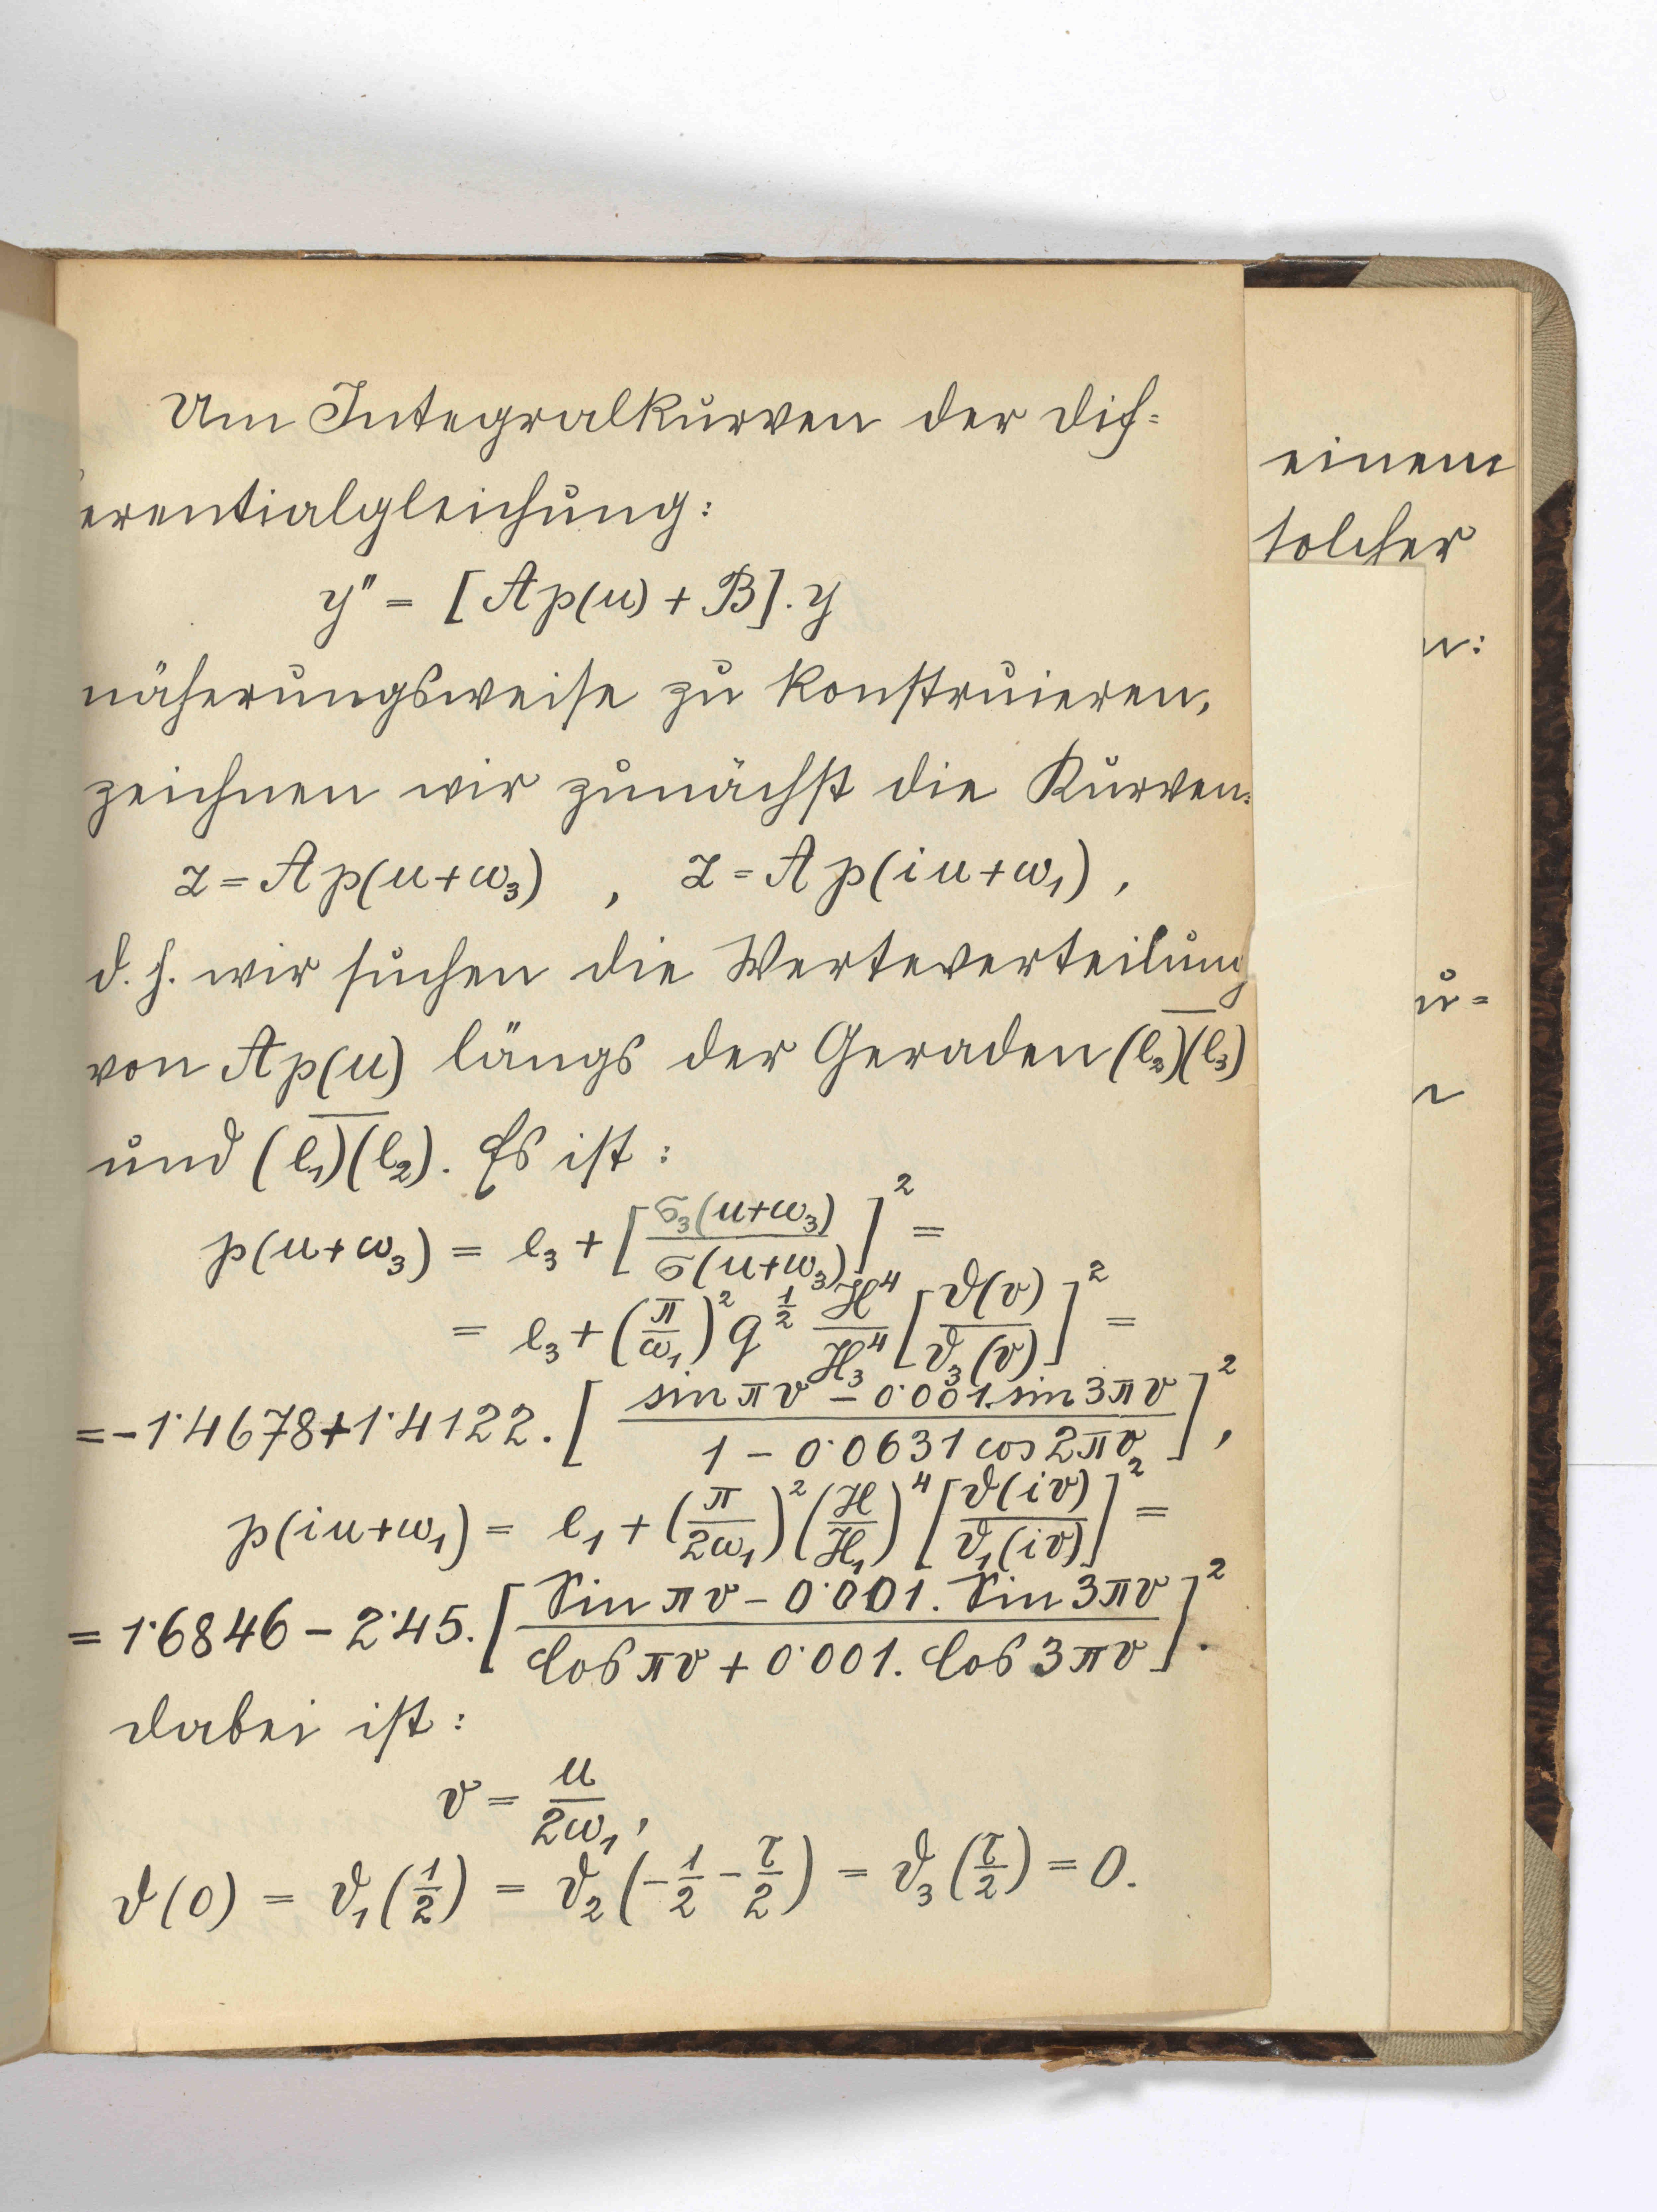 Um Integralkurven der Dif=
erentialgleichung:
y'' = [Ap(u) + B].y
näherungsweise zu konstruieren,
zeichnen wir zunächst die Kurven:
z = Ap(u+ω₃) , z = Ap(iu+ω₁) ,
d. h. wir suchen die Werteverteilung
von Ap(u) längs der Geraden (e₂)(e₃)
und (e₁)(e₂). Es ist:
p(u+ω₃) = e₃ + [σ₃(u+ω₃)/σ(u+ω₃)]² =
= e₃ + (π/ω₁)² q^½ H⁴/H₃⁴ [ϑ(v)/ϑ₃(v)]² =
= -1·4678 + 1·4122.[(sin πv - 0·001.sin 3πv)/(1 - 0·0631 cos 2πv)]²,
p(iu+ω₁) = e₁ + (π/2ω₁)² (H/H₁)⁴ [ϑ(iv)/ϑ₁(iv)]² =
= 1·6846 - 2·45.[(Sin πv - 0·001. Sin 3πv)/(Cos πv + 0·001. Cos 3πv)]².
dabei ist:
v = u/2ω₁,
ϑ(0) = ϑ₁(1/2) = ϑ₂(-1/2 - τ/2) = ϑ₃(τ/2) = 0.
einem
solcher
n:
u=